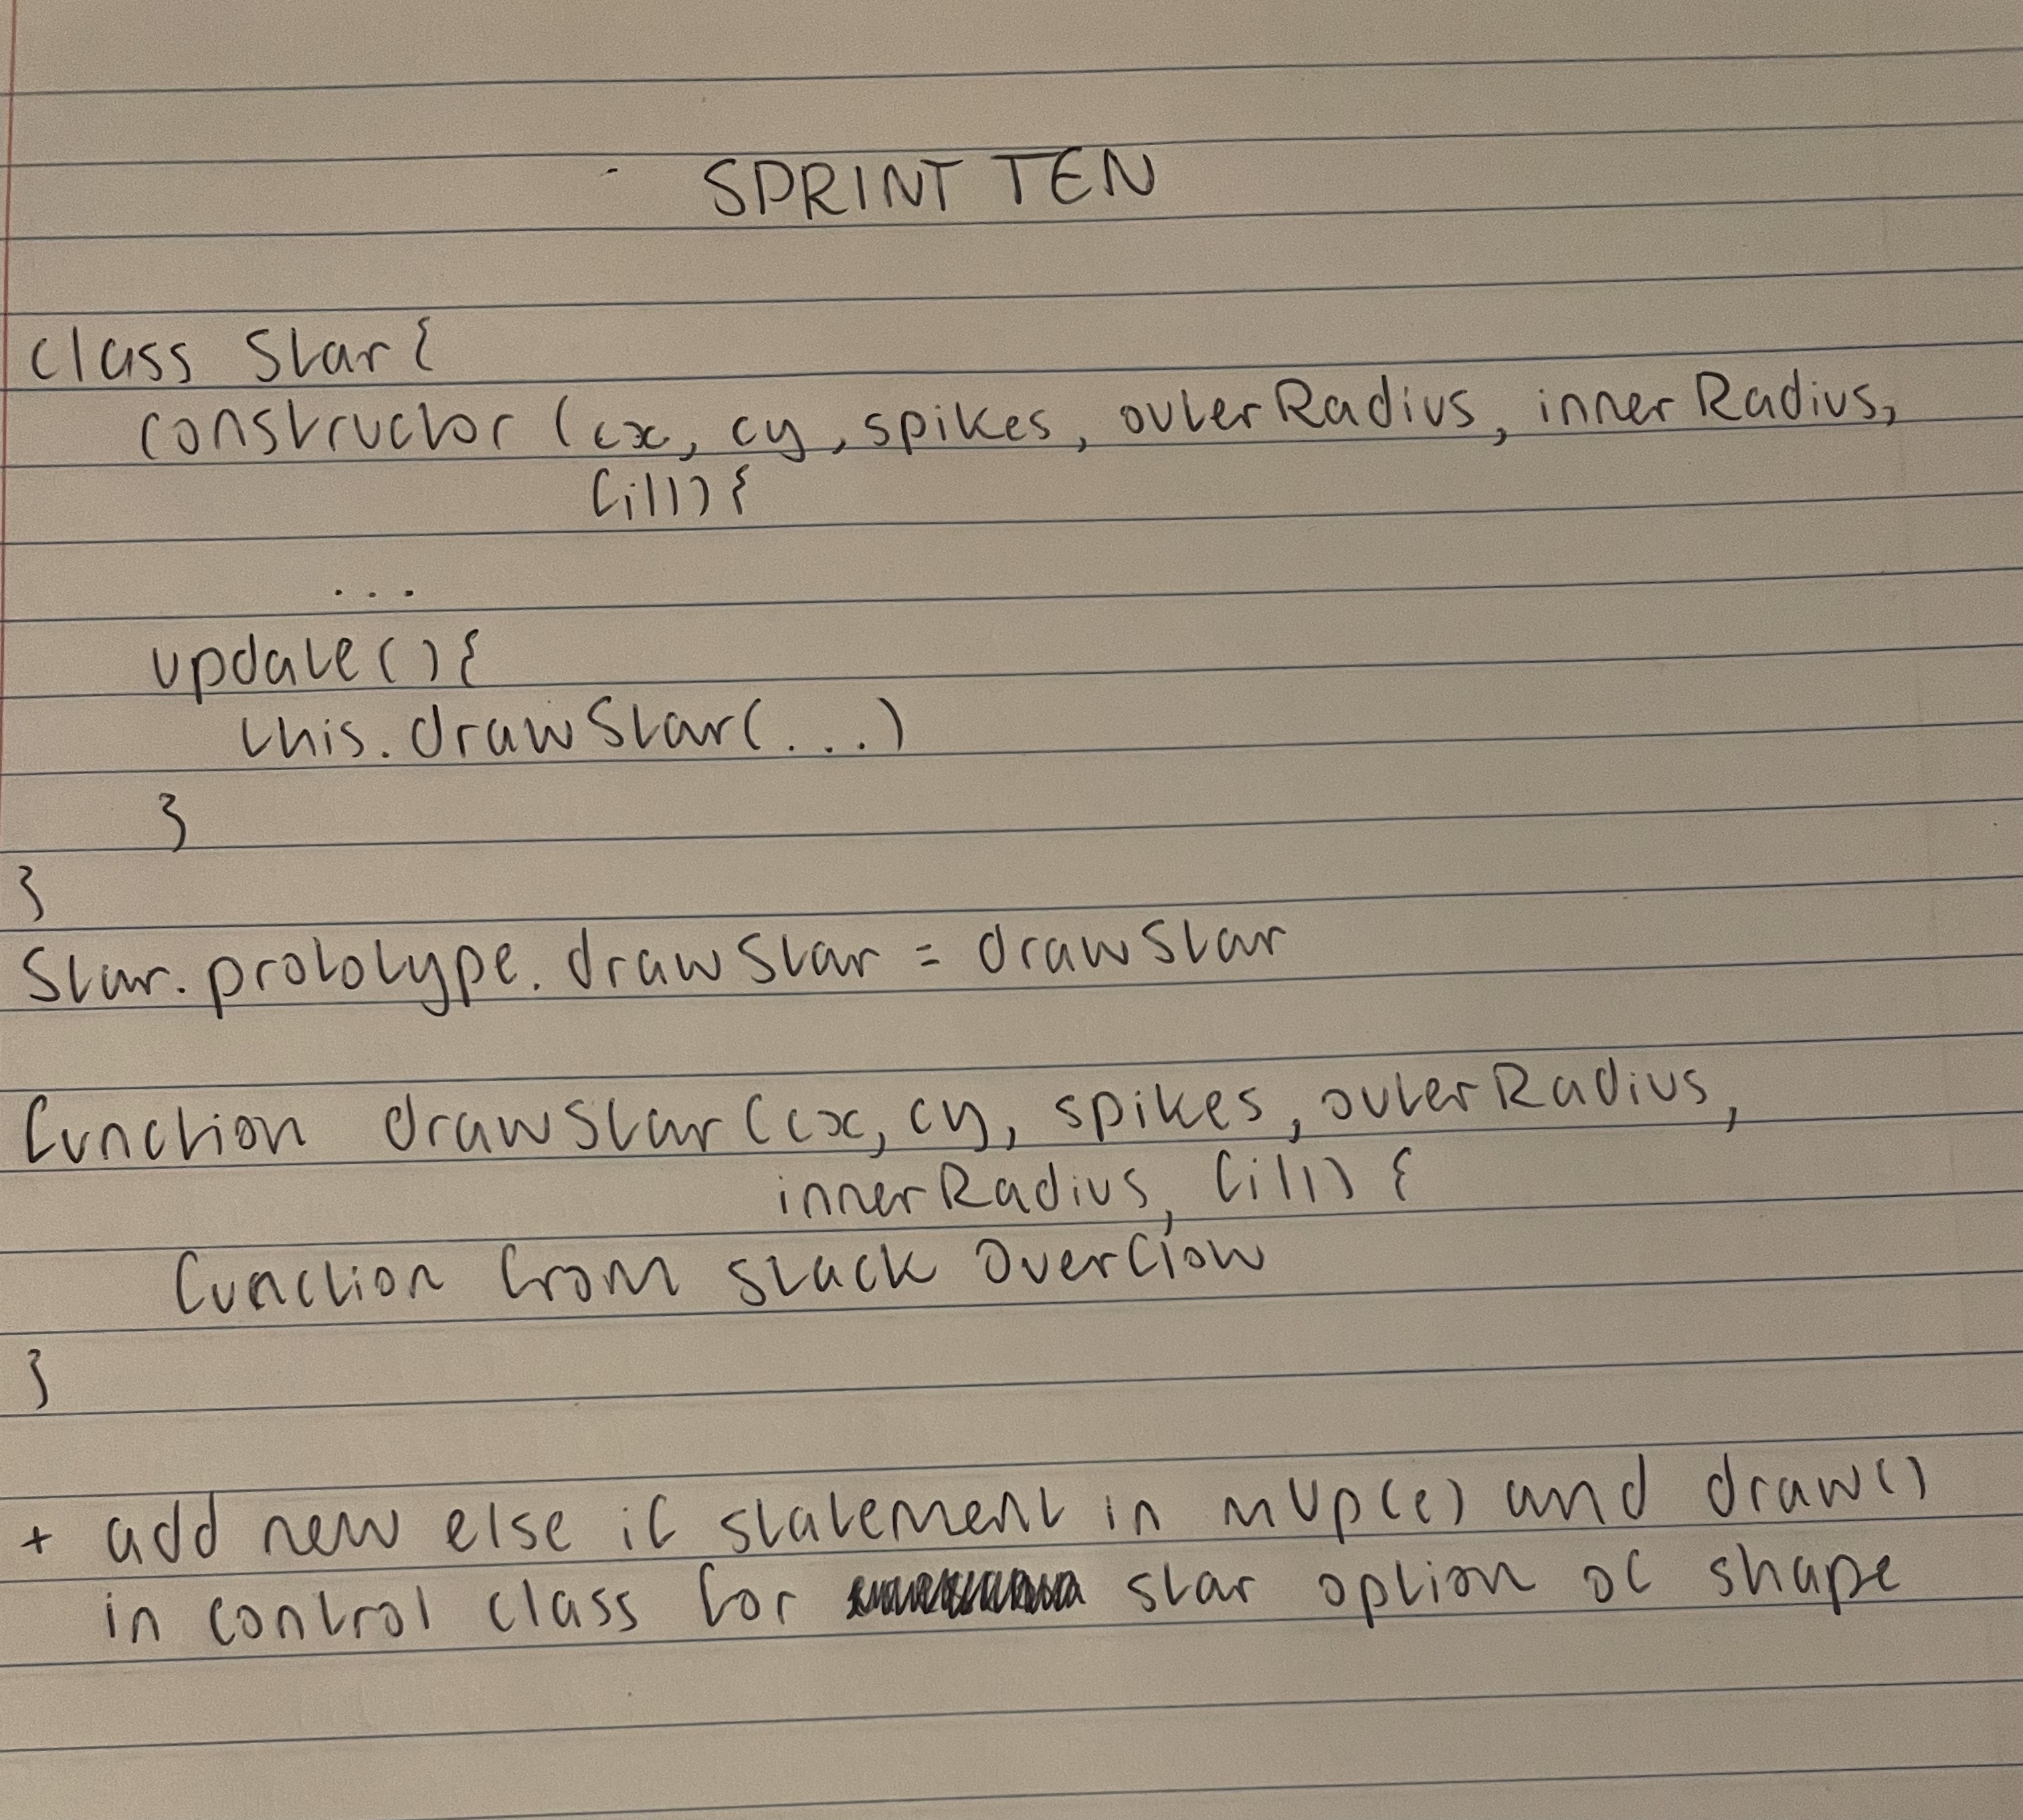 SPRINT TEN
class Star{
constructor (cx, cy, spikes, outerRadius, innerRadius,
fill){
...
update(){
this.drawStar(...)
}
}
Star.prototype.drawStar = drawStar
function drawStar(cx, cy, spikes, outerRadius,
innerRadius, fill) {
function from stack overflow
}
+ add new else if statement in mUp(e) and draw()
in control class for star option of shape